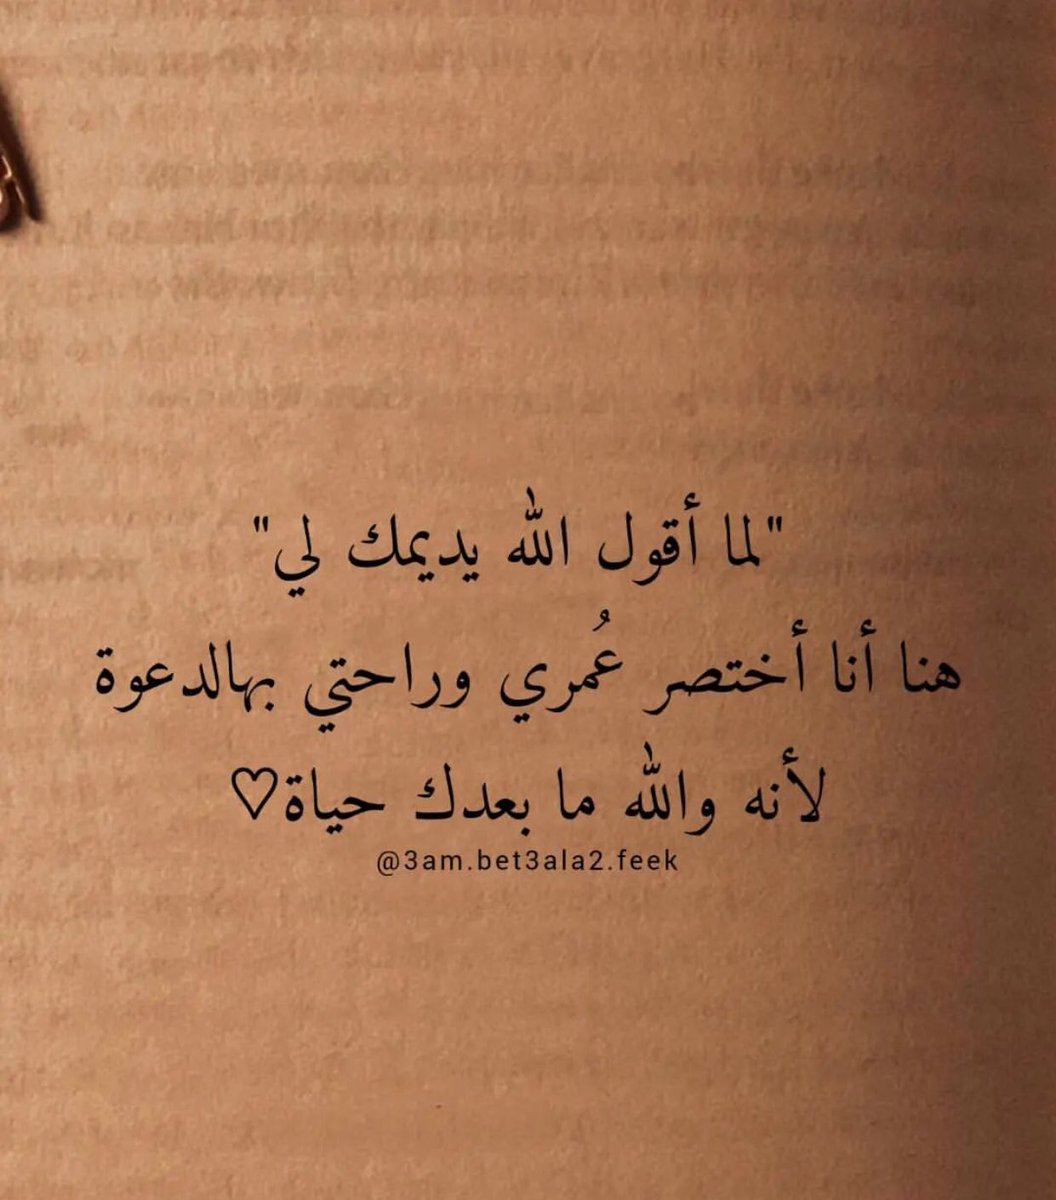 "لما أقول الله يديمك لي"
هنا أنا أختصر عُمري وراحتي بهالدعوة
لأنه والله ما بعدك حياة♡
@3am.bet3ala2.feek